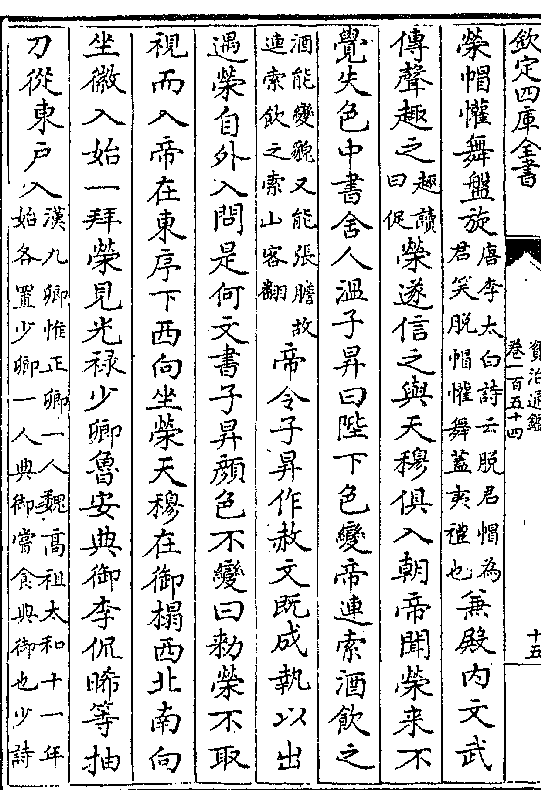 欽定四庫全書
資治通鑑
卷一百五十四
十五
榮帽懽舞盤旋
唐李太白詩云脱君帽為
君笑脱帽懽舞蓋夷禮也
兼殿内文武
傳聲趣之
趣讀
曰促
榮遂信之與天穆俱入朝帝聞榮来不
覺失色中書舍人溫子昇曰陛下色變帝連索酒飲之
酒能變貌又能張膽故
連索飲之索山客翻
帝令子昇作赦文既成執以出
遇榮自外入問是何文書子昇顔色不變曰勑榮不取
視而入帝在東序下西向坐榮天穆在御榻西北南向
坐徽入始一拜榮見光禄少卿魯安典御李侃晞等抽
刀從東户入
漢九卿惟正卿一人魏高祖太和十一年
始各置少卿一人典御嘗食典御也少詩